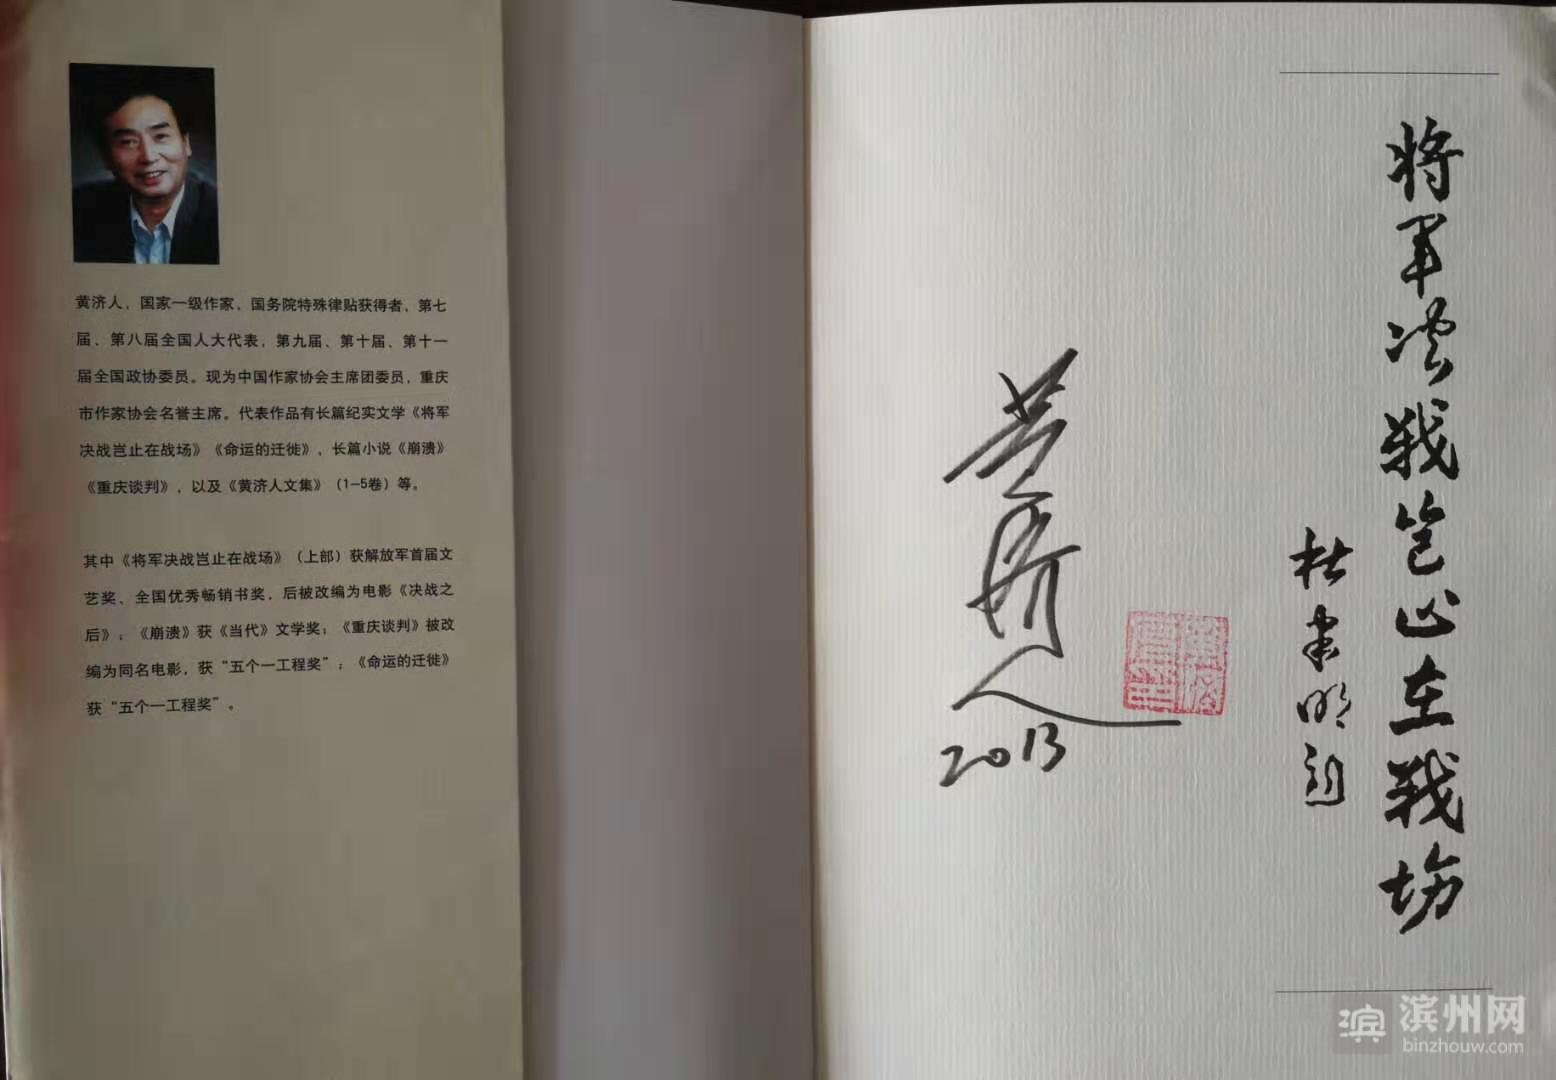 黄济人，国家一级作家，国务院特殊律贴获得者，第七
届、第八届全国人大代表，第九届、第十届、第十一
届全国政协委员。现为中国作家协会主席团委员，重庆
市作家协会名誉主席。代表作品有长篇纪实文学《将军
决战岂止在战场》《命运的迁徙》，长篇小说《崩溃》
《重庆谈判》，以及《黄济人文集》（1-5卷）等。
其中《将军决战岂止在战场》（上部）获解放军首届文
艺奖、全国优秀畅销书奖，后被改编为电影《决战之
后》；《崩溃》获《当代》文学奖；《重庆谈判》被改
编为同名电影，获“五个一工程奖”；《命运的迁徙》
获“五个一工程奖”。
将军决战岂止在战场
杜聿明题
黄济人
2013
滨 滨州网
binzhouw.com